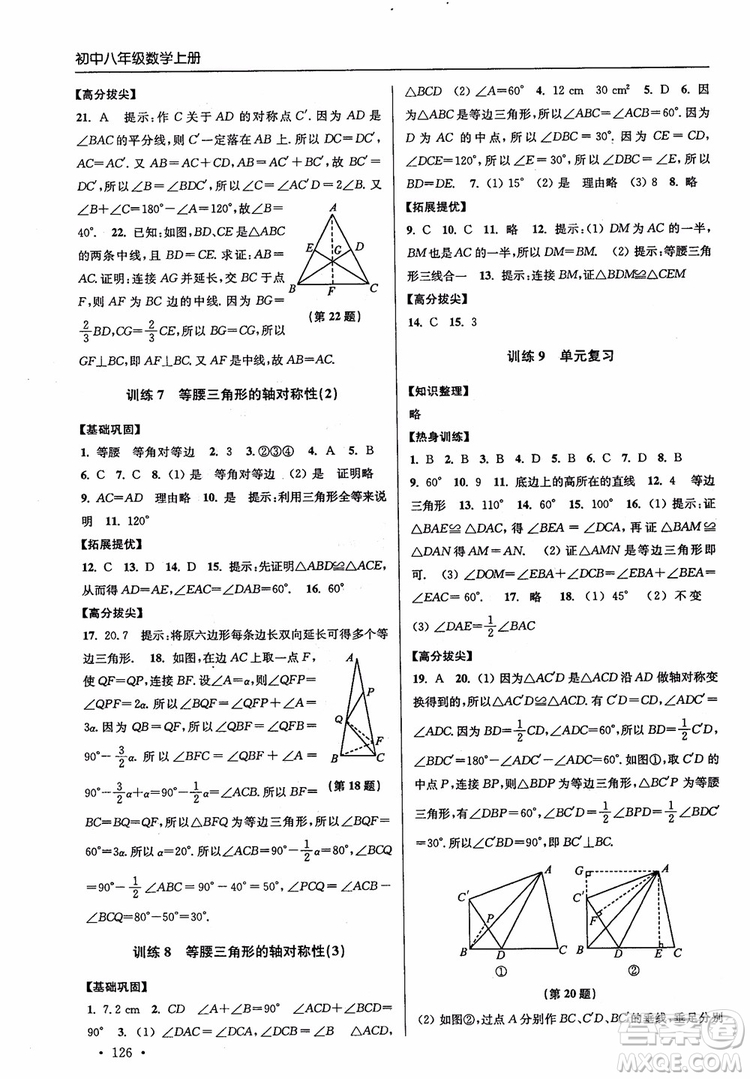 初中八年级数学上册
【高分拔尖】
21. A 提示：作 C 关于 AD 的对称点 C′. 因为 AD 是
∠BAC 的平分线，所以 C′一定落在 AB 上. 所以 DC=DC′，
AC=AC′. 又 AB=AC+CD，所以 BC′=DC. 所以 BC′=
DC′，所以∠B=∠C′DB，所以∠C=∠AC′D=2∠B. 又
∠B+∠C=180°-∠A=120°，所以∠B=
40°. 22. 已知：如图，BD、CE 是△ABC
的两条中线，且 BD=CE. 求证：AB=
AC. 证明：连接 AG 并延长，交 BC 于点
F，则 AF 为 BC 边的中线. 因为 BG=
2/3 BD，CG=2/3 CE，所以 BG=CG，所以
GF⊥BC，即 AF⊥BC. 又 AF 是中线，所以 AB=AC.
A
E
D
G
B
F
C
(第 22 题)
训练 7 等腰三角形的轴对称性(2)
【基础巩固】
1. 等腰 等角对等边 2. 3 3. ②③④ 4. A 5. B
6. C 7. C 8. (1) ∠EAD ∠CAD ∠B (2) 是 证明略
9. AC=AD 理由略 10. 是 提示：利用三角形全等来说
明 11. 120°
【拓展提优】
12. C 13. D 14. D 15. 提示：先证明△ABD≌△ACE，
从而得 AD=AE，∠EAC=∠DAB=60°. 16. 略
【高分拔尖】
17. 20.7 提示：将原六边形每条边长双向延长可得个等
边三角形. 18. 如图，在边 AC 上取一点 F，
使 QF=QP，连接 BF. 设∠A=α，则∠QFP=
∠QPF=2α，所以∠BQF=∠A+∠QFA=
3α. 因为 QB=QF，所以∠QBF=∠QFB=
90°-3/2 α. 所以∠BFC=∠QBF+∠A=
90°-3/2 α+α=90°-1/2 α. 所以 BF=
BC=BQ=QF，所以△BFQ 为等边三角形，所以∠FBQ=
60°=3α. 所以α=20°. 所以∠ABC=∠ACB=90°-1/2 α=
80°. 所以∠ABC=90°-50°=40°. 所以∠PCQ=∠ACB-
∠BCQ=80°-50°=30°.
P
Q
F
B
C
(第 18 题)
训练 8 等腰三角形的轴对称性(3)
【基础巩固】
1. 7.2 cm 2. CD ∠A ∠ACD ∠B ∠BCD
90° 3. (1) ∠ACD=∠ADC；∠BCE=∠BEC △ACD、
• 126 •
△BCD (2) ∠A=60° 4. 12 cm 30 cm² 5. D 6. 因
为△ABC 是等边三角形，所以∠ABC=∠ACB=60°. 因为
D 为 AC 的中点，所以∠DBC=30°. 因为 CE=CD，
∠DCE=120°，所以∠E=30°，所以∠DBC=∠E，所以
BD=DE. 7. (1) 15° (2) 是 理由略 (3) 8 8. 略
【拓展提优】
9. C 10. C 11. 略 12. 提示：(1) DM 为 AC 的一半，
BM 也为 AC 的一半，所以 DM=BM. (2) 提示：等腰三角
形三线合一 13. 提示：连接 BM，证△BDM≌△CEM
【高分拔尖】
14. C 15. 3
训练 9 单元复习
【知识整理】
略
【热身训练】
1. B 2. B 3. C 4. D 5. D 6. C 7. D 8. B
9. 60° 10. 9 11. 底边上的高所在的直线 12. 4 等边
三角形 13. 110° 14. 60° 15. 100° 16. 提示：(1) 证
△BAE≌△DAC，得∠BEA=∠DCA，再证△BAM≌
△DAN 得 AM=AN. (2) 证△AMN 是等边三角形即
可. (3) ∠DOM=∠EBA+∠DCA=∠EBA+∠BEA=
60° 17. 略 18. 略 19. (1) 45° (2) 不变
(3) ∠DAE=1/2 ∠BAC
【高分拔尖】
19. A 20. (1) 因为△AC′D 是△ADC 沿 AD 做轴对称变
换得到的，所以△AC′D≌△ACD. 所以∠AC′D=
∠ADC. 所以 C′D=CD，∠ADC′=∠ADC=60°. 所以
∠BDC′=180°-∠ADC′-∠ADC=60°. 如图①，取 BD 的
中点 P，连接 BP，则△DC′P 为等边三角形，△BC′P 为等腰
三角形，有∠DBP=60°=1/2 ∠BPD=1/2 ∠BDC′=
30°. 所以∠C′BD=90°，即 BC′⊥BC.
A
C′
P
B
D
C
①
G
A
C′
F
B
D
E
C
②
(第 20 题)
(2) 如图②，过点 A 分别作 BC、C′D、BC′的垂线，垂足分别